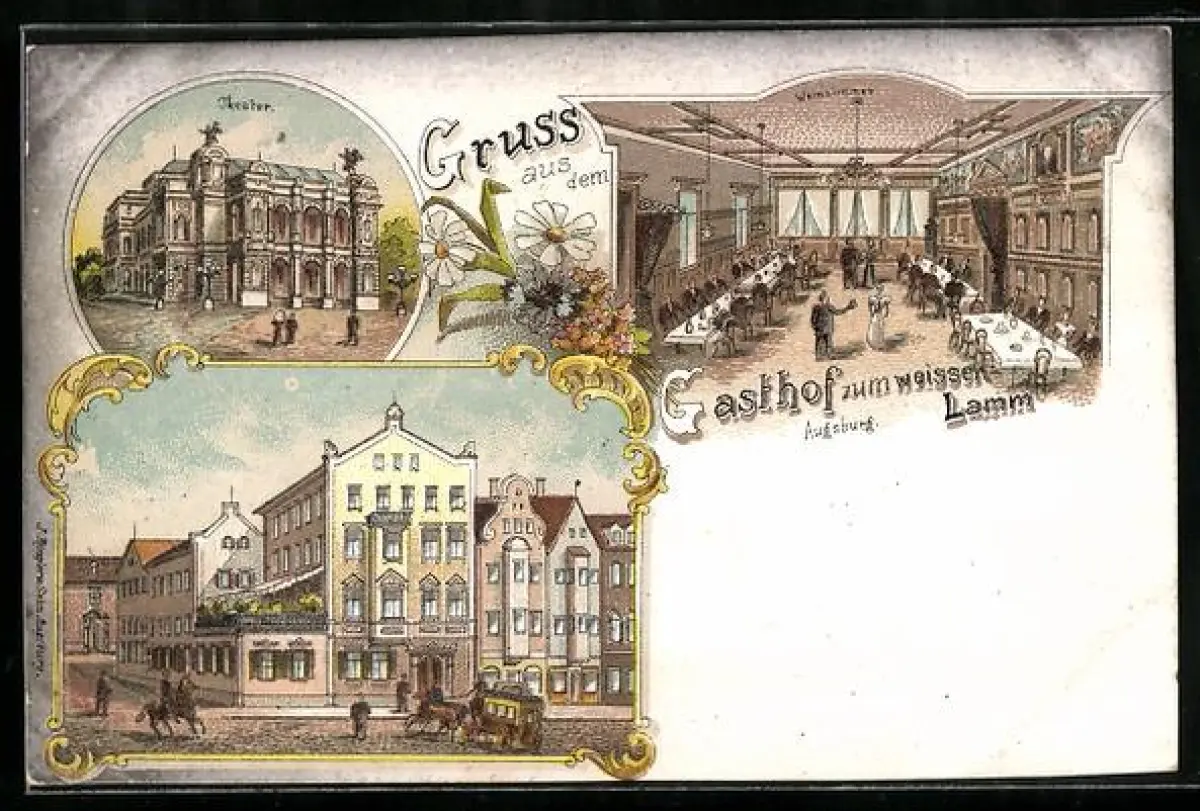 Theater.
Gruss
aus
dem
Weinzimmer
Gasthof zum weissen
Lamm
Augsburg.